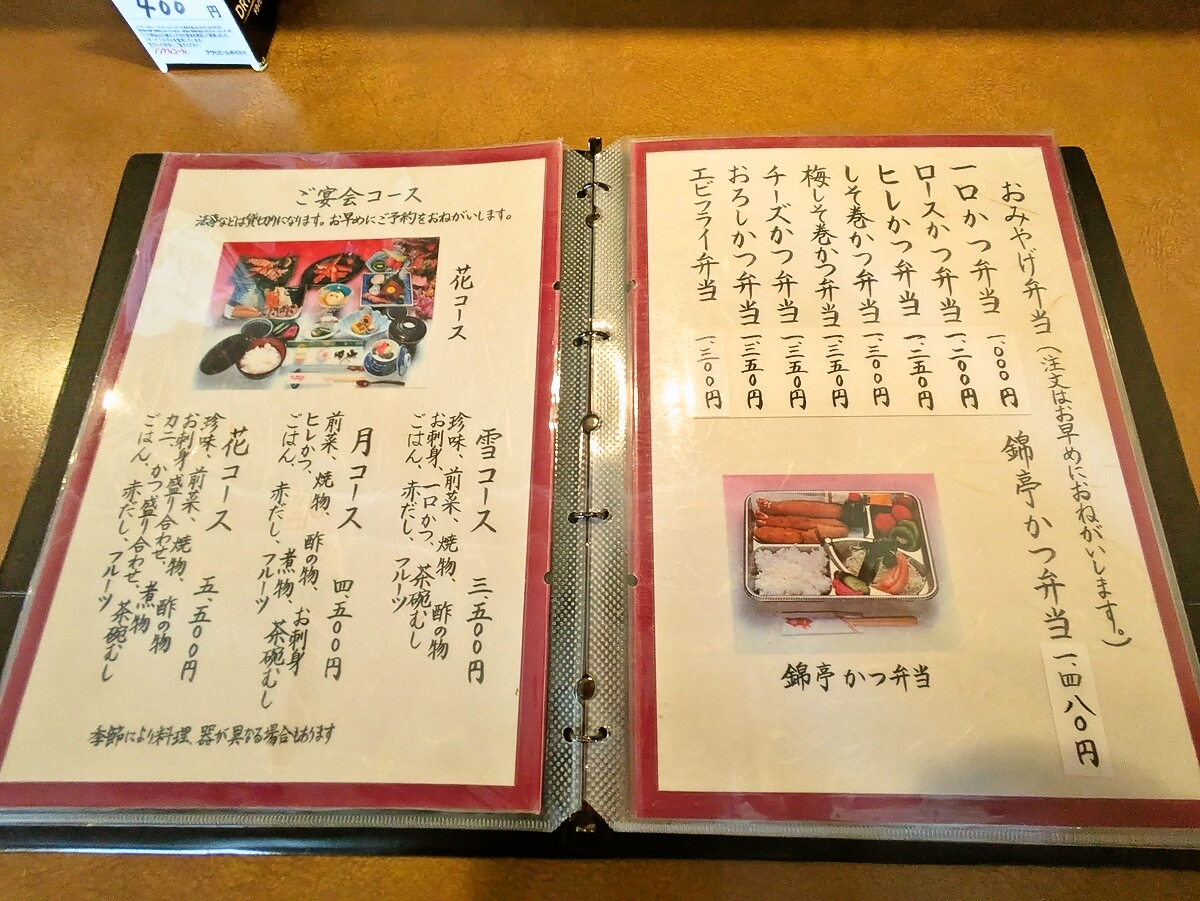 400 円
ノンアルコール
アサヒビール株式会社
ご宴会コース
法事などは貸切りになります。お早めにご予約をおねがいします。
花コース
雪コース 三、五〇〇円
珍味、前菜、焼物、酢の物
お刺身、一口かつ、茶碗むし
ごはん、赤だし、フルーツ
月コース 四、五〇〇円
前菜、焼物、酢の物、お刺身
ヒレかつ、煮物、茶碗むし
ごはん、赤だし、フルーツ
花コース 五、五〇〇円
珍味、前菜、焼物、酢の物
お刺身盛り合わせ、煮物
カニ、かつ盛り合わせ、茶碗むし
ごはん、赤だし、フルーツ
季節により料理、器が異なる場合もあります
おみやげ弁当(注文はお早めにおねがいします。)
一口かつ弁当 一、〇〇〇円
ロースかつ弁当 一、二〇〇円
ヒレかつ弁当 一、二五〇円
しそ巻かつ弁当 一、三〇〇円
梅しそ巻かつ弁当 一、三五〇円
チーズかつ弁当 一、三五〇円
おろしかつ弁当 一、三五〇円
エビフライ弁当 一、三〇〇円
錦亭かつ弁当 一、四八〇円
錦亭かつ弁当